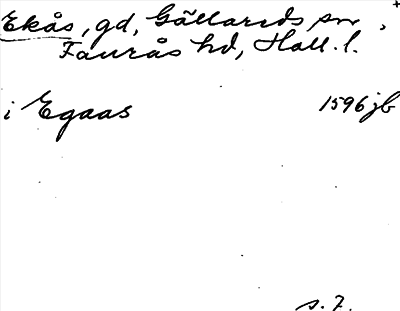 Ekås, gd, Gällareds sn,
Faurås hd, Hall. l.
i Egaas 1596 jb
s. 7.